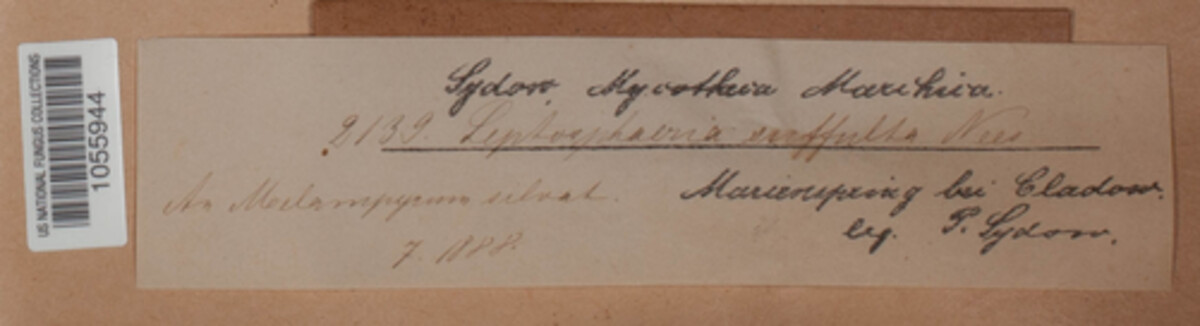 US NATIONAL FUNGUS COLLECTIONS
1055944
Sydow, Mycotheca Marchica.
2132. Leptosphaeria suffulta Nees
An Melampyrum silvat.
7. 1888.
Marienspring bei Cladow.
leg. P. Sydow.